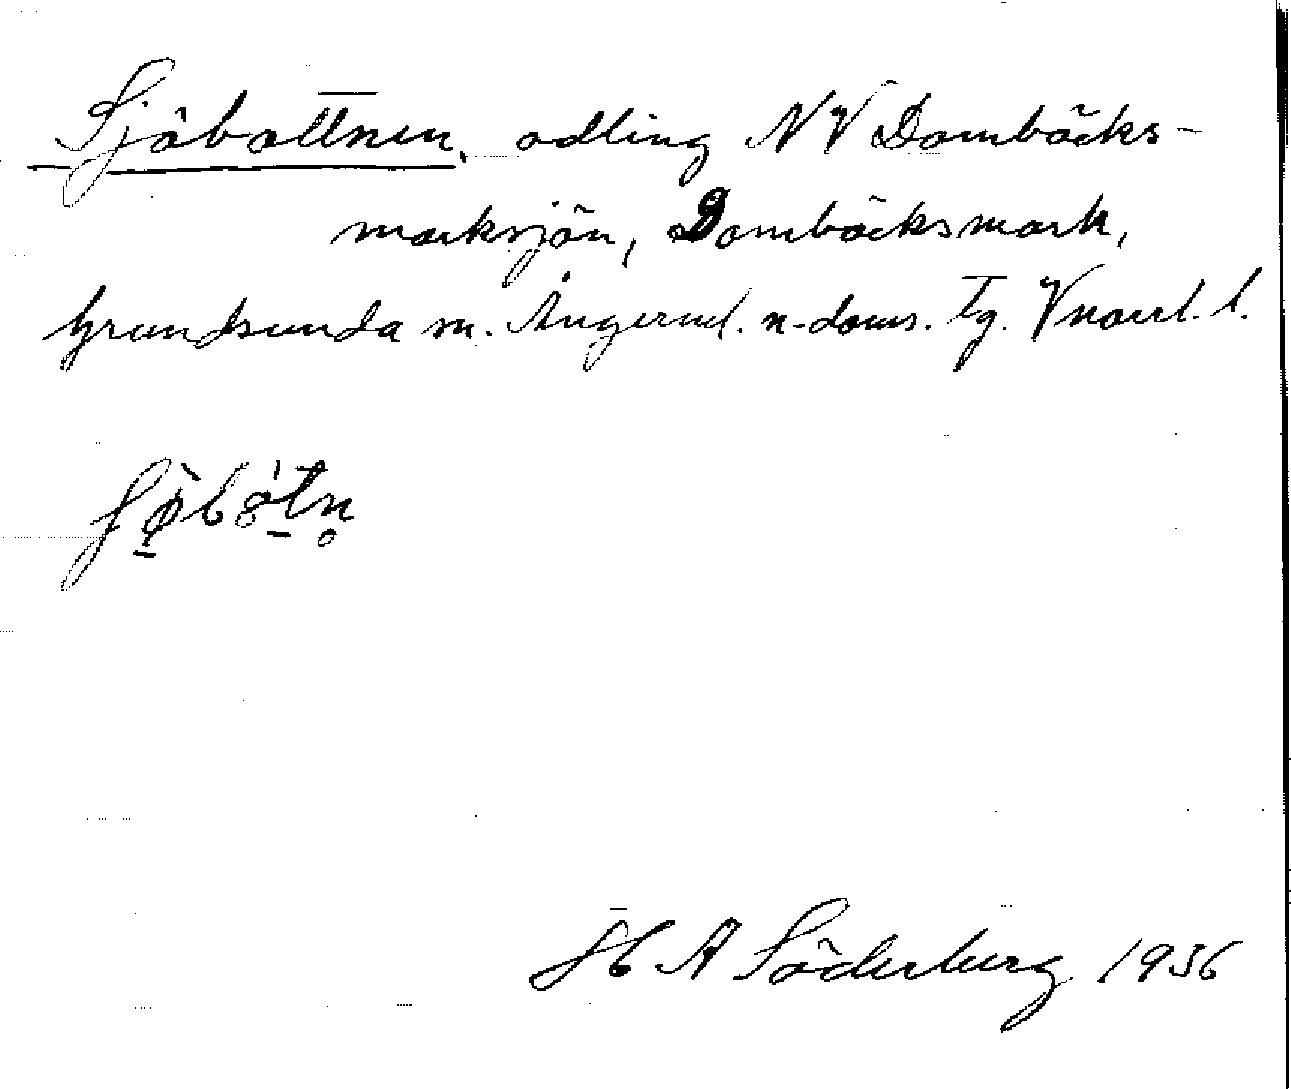 Sjöbottnen, odling NV Dombäcks-
marksjön, Dombäcksmark,
Grundsunda sn. Ångerml. n. doms. Tg. Vnorrl. l.
H A Söderberg 1936